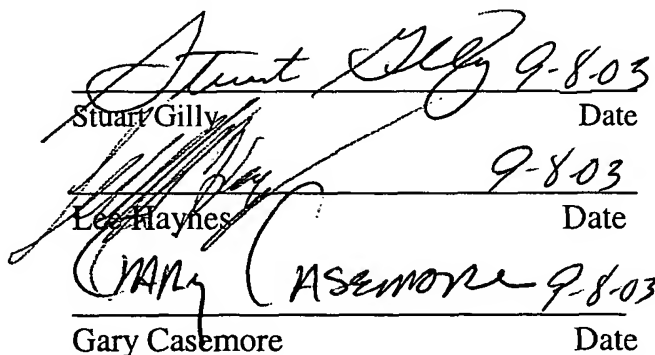 Stuart Gilly 9-8-03
Stuart Gilly Date
9-8-03
Lee Haynes Date
Gary Casemore 9-8-03
Gary Casemore Date